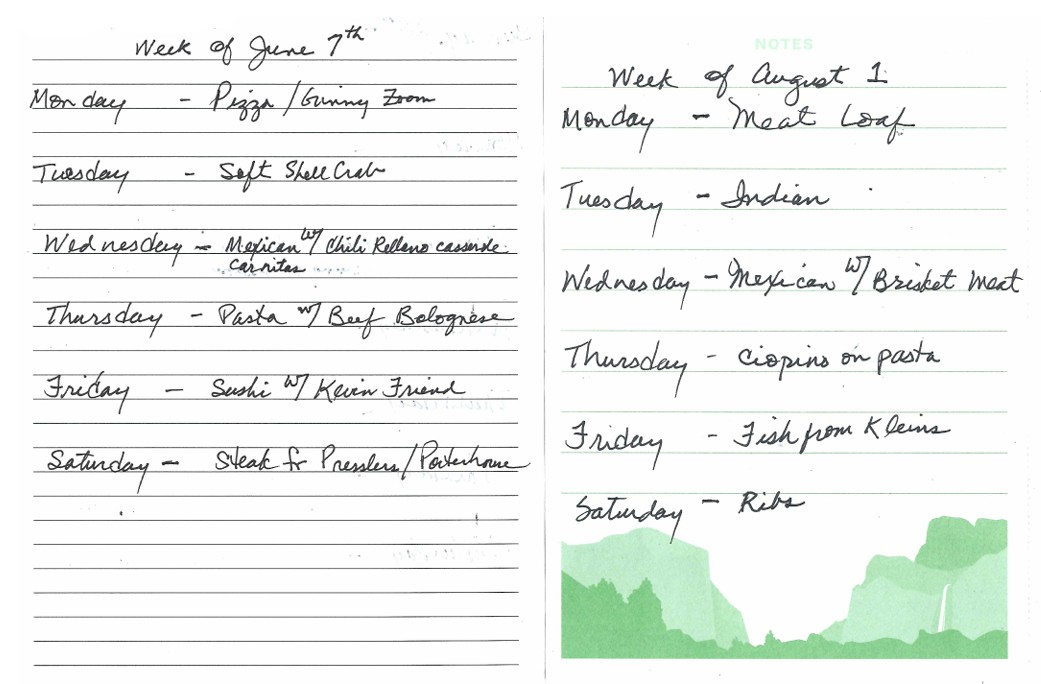 Week of June 7th
Monday - Pizza / Gunny Zoom
Tuesday - Soft Shell Crab
Wednesday - Mexican w/ Chili Relleno casserole
carnitas
Thursday - Pasta w/ Beef Bolognese
Friday - Sushi w/ Kevin Friend
Saturday - Steak fr Presslers / Porterhouse
NOTES
Week of August 1
Monday - Meat Loaf
Tuesday - Indian
Wednesday - Mexican w/ Brisket Meat
Thursday - Ciopino on pasta
Friday - Fish from Kleins
Saturday - Ribs